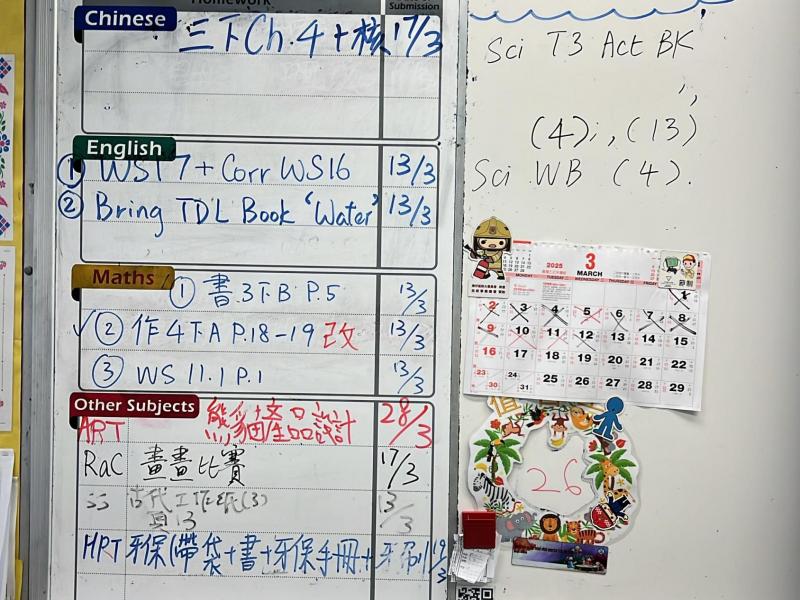 Homework
Submission
Chinese
三下Ch.4+核 17/3
English
① WS17+Corr WS16 13/3
② Bring TDL Book 'Water' 13/3
Maths
① 書.3下B P.5 13/3
✓② 作4下A P.18-19 改 13/3
③ WS 11.1 P.1 13/3
Other Subjects
ART 熊貓產品設計 28/3
RaC 畫畫比賽 17/3
古代工作紙(3) 13/3
頁13
HRT 牙保(帶袋+書+牙保手冊+牙刷) 19/3
Sci T3 Act BK
(4)i, (13)
Sci WB (4).
2025
3
MARCH
節制
1
2 3 4 5 6 7 8
9 10 11 12 13 14 15
16 17 18 19 20 21 22
23 24 25 26 27 28 29
30 31
26